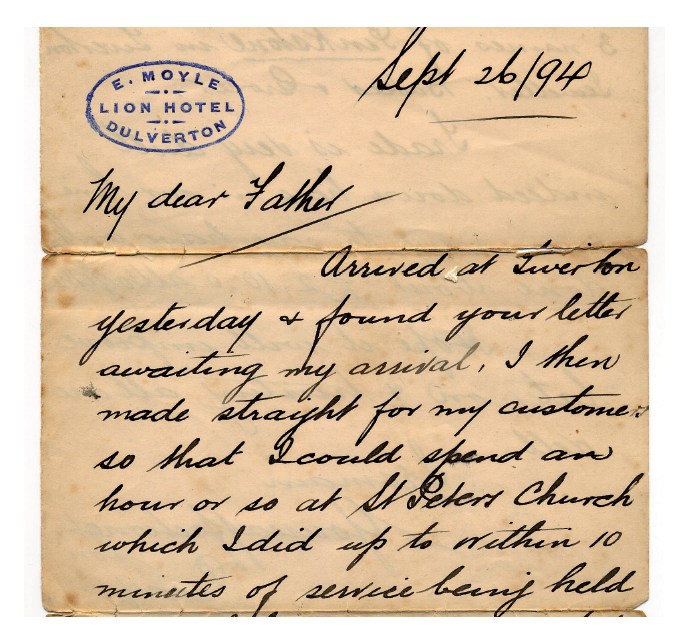 Sept 26/94
E. MOYLE
LION HOTEL
DULVERTON
My dear Father
Arrived at Tiverton
yesterday & found your letter
awaiting my arrival, I then
made straight for my customers
so that I could spend an
hour or so at St Peters Church
which I did up to within 10
minutes of service being held